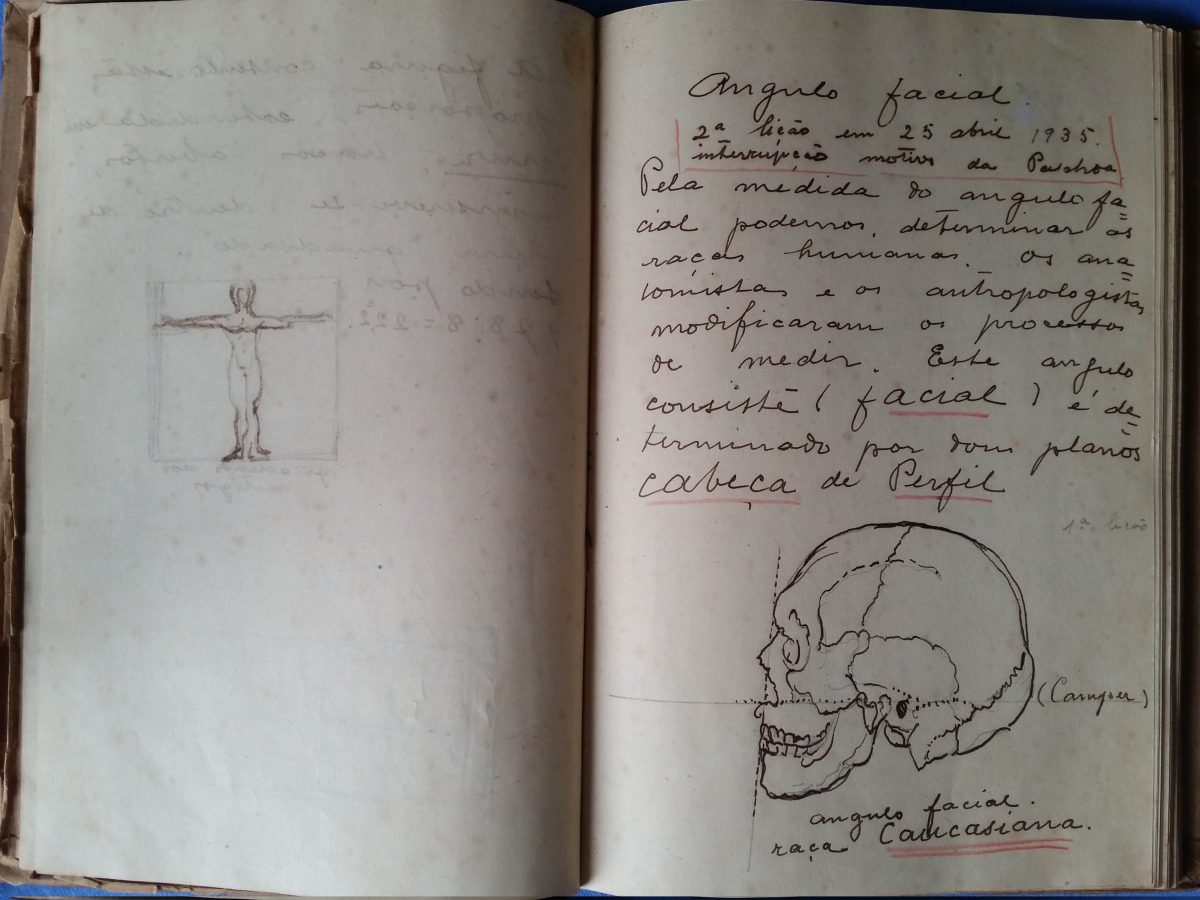 A figura
em
braços abertos,
se dentro de
um quadrado
Angulo facial.
2ª lição em 25 abril 1935.
interrupção motivo da Paschoa
Pela medida do angulo fa=
cial podemos, determinar as
raças humanas. Os ana=
tomistas e os antropologistas
modificaram os processos
de medir. Este angulo
consiste (facial) é de=
terminado por dois planos
cabeça de Perfil
1ª lição
(Camper)
angulo facial.
raça Caucasiana.